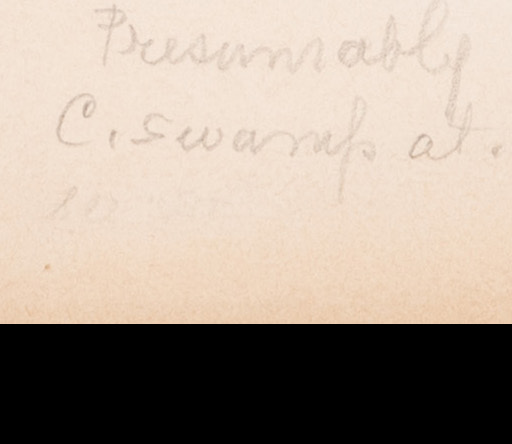 Presumably
C. swamp at.